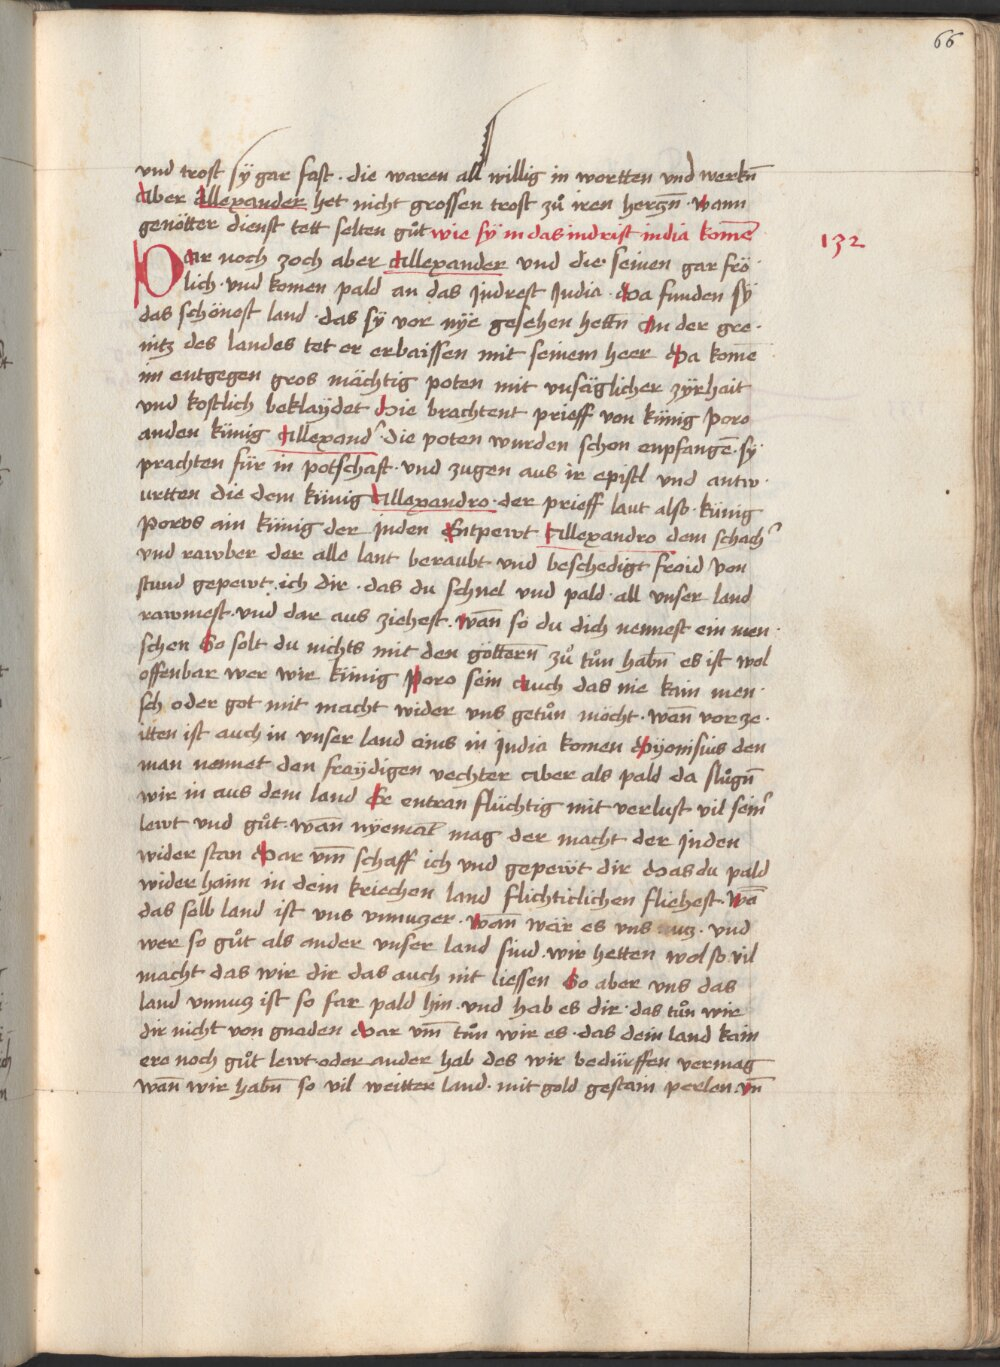 66
vnd trost sÿ gar fast · die waren all willig in wortten vnd werkn̄
Aber Allexander het nicht grossen trost zů iren herczn̄ · wann
genötter dienst tett selten gůt wie sÿ in das indrist india komē
132
Dar noch zoch aber Allexander vnd die seinen gar frö
lich · vnd komen pald an das Jndrest Jndia · Da funden sÿ
das schönest land · das sÿ vor nÿe gesehen hettn̄ An der gre ·
nitz des landes tet er erbaissen mit seinem heer Da komē
im entgegen gros mächtig poten mit vnsäglicher zÿrhait
vnd kostlich beklaÿdet Die brachtent prieff von künig Poro
anden künig Allexand̾ · die poten wurden schon enpfangē · sÿ
prachten für in potschaft · vnd zugen aus ir epistl vnd antw ·
urtten die dem künig Allexandro · der prieff laut also · künig
Poros ain künig der Jnden Entpewt Allexandro dem schach̾
vnd rawber der alle lant beraubt vnd beschedigt froid von
stund gepewt · ich dir · das du schnel vnd pald · all vnser land
rawmest · vnd dar aus ziehest · wan̄ so du dich nennest ein men ·
schen So solt du nichts mit den göttern̄ zů tůn habn̄ es ist wol
offenbar wer wir künig Poro sein Auch das nie kain men ·
sch oder got mit macht wider vns getůn möcht · wan̄ vor ze ·
itten ist auch in vnser land ains in Jndia komen Dÿonisius den
man nennet den fraÿdigen vechter aber als pald da slůgn̄
wir in aus dem land Er entran flüchtig mit verlust vil sein̾
lewt vnd gůt · wan̄ nÿemat̄ mag der macht der Jnden
wider stan Dar vm̄ schaff ich vnd gepewt dir Das du pald
wider haim in dein kriechen land flichticlichen fliehest · wā
das selb land ist vns vnnuczer · wan̄ wär es vns nucz · vnd
wer so gůt als ander vnser land sind · wir hetten wol so vil
macht das wir dir das auch nit liessen So aber vns das
land vnnucz ist so far pald hin · vnd hab es dir · das tůn wir
dir nicht von gnaden Dar vm̄ tůn wir es · das dein land kain
ere noch gůt lewt · oder ander hab des wir bedürffen vermag
wan̄ wir habn̄ so vil weitter land · mit gold gestain perlen · vn̄